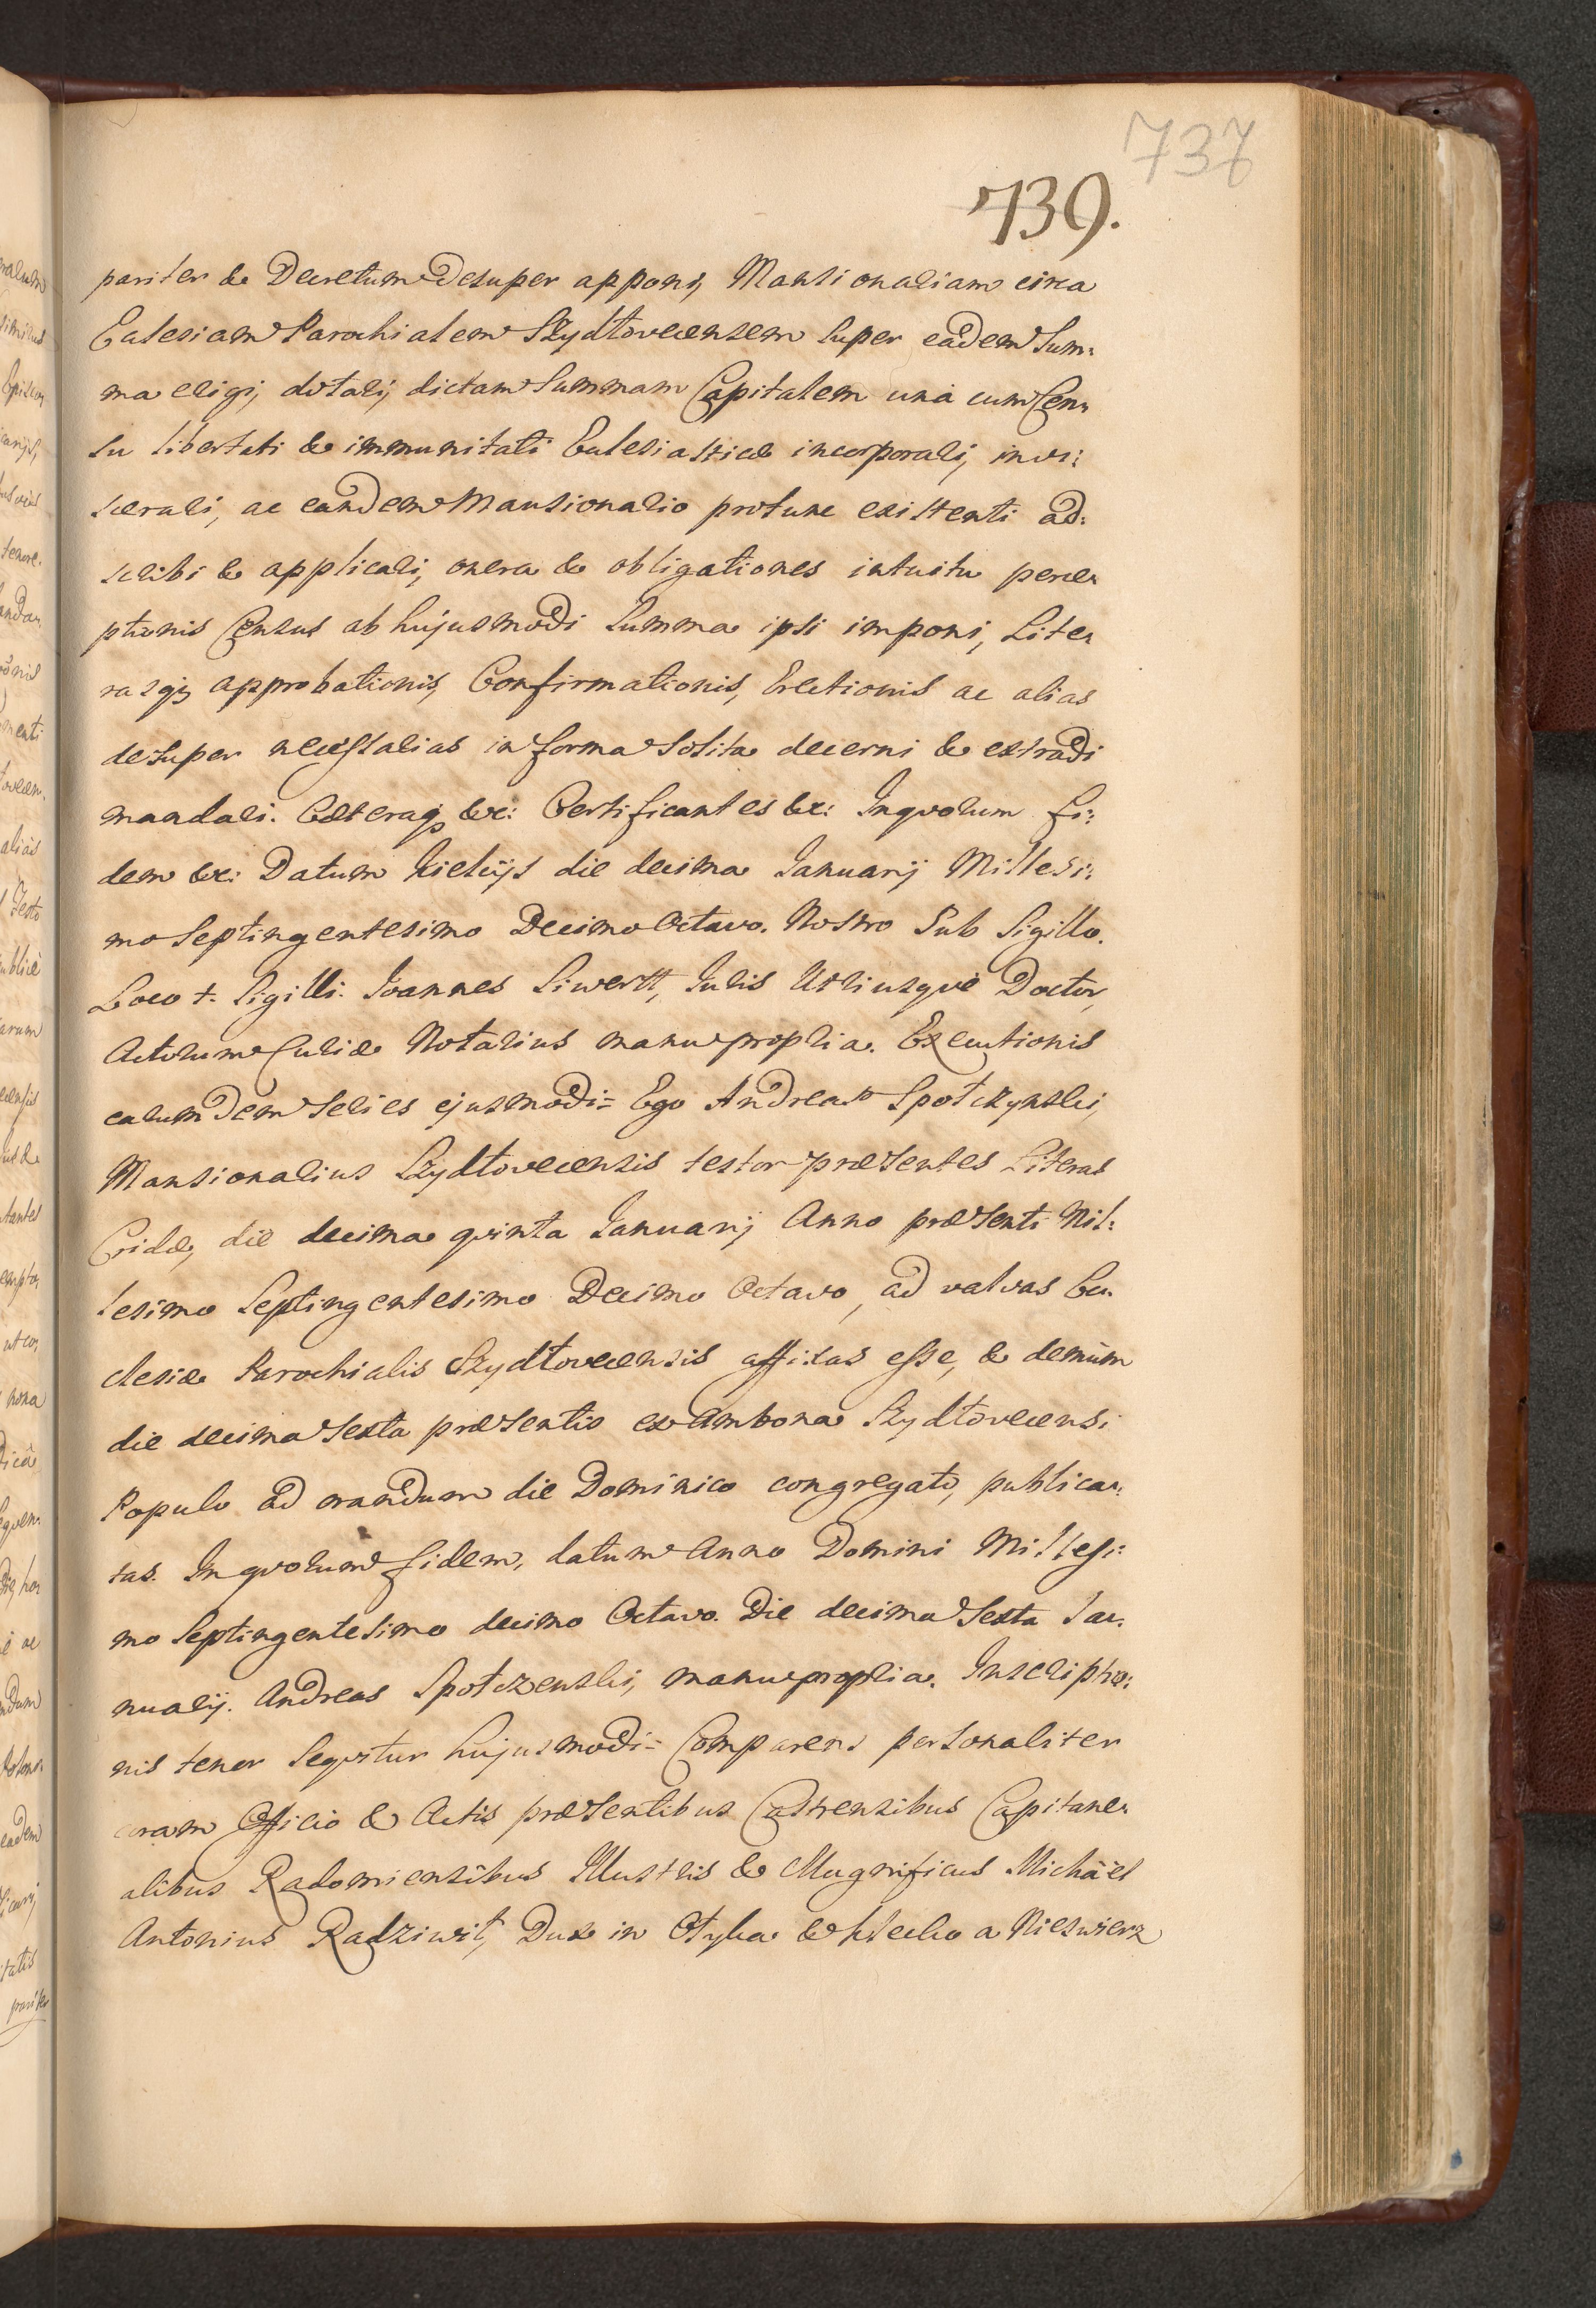 737
739.
pariter & Decretum desuper apponi, Mansionariam circa
Ecclesiam Parochialem Szydłoviecensem super eadem Sum:
ma erigi, dotari, dictam Summam Capitalem unà cum Cen:
su libertati & immunitati Ecclesiasticæ incorporari, invi:
scerari, ac eandem Mansionario protunc existenti ad:
scribi & applicari, onera & obligationes intuitu perce:
ptionis Census ab hujusmodi Summa ipsi imponi, Lite:
rasq; approbationis, Confirmationis, Erectionis ac alias
desuper necessarias in forma solita decerni & extradi
mandari. Cæteraq; &c: Certificantes &c: Inqvorum fi:
dem &c: Datum Kielcijs die decima Januarij Millesi:
mo Septingentesimo Decimo Octavo. Nostro Sub Sigillo.
Loco +. Sigilli. Joannes Siwertt, Juris Utriusqve Doctor,
Actorum Curiæ Notarius manu propria. Executionis
earumdem series ejusmodi = Ego Andreas Spotczynski,
Mansionarius Szydłoviecensis testor præsentes Literas
Cridæ, die decima qvinta Januarij Anno præsenti Mil:
lesimo Septingentesimo Decimo Octavo, ad valvas Ec:
clesiæ Parochialis Szydłoviecensis affixas esse, & demùm
die decima sexta præsentis ex Ambona Szydłoviecensi
Populo ad orandum die Dominico congregato, publica:
tas. In qvorum fidem, datum Anno Domini Millesi:
mo Septingentesimo decimo Octavo. Die decima Sexta Ja:
nuarij. Andreas Spotczenski, manu propria. Inscriptio:
nis tenor seqvitur hujusmodi = Comparens personaliter
coram Officio & Actis præsentibus Castrensibus Capitane:
alibus Radomiensibus Illustris & Magnificus Michäel
Antonius Radziwił, Dux in Ołyka & Klecko a Nieswierz